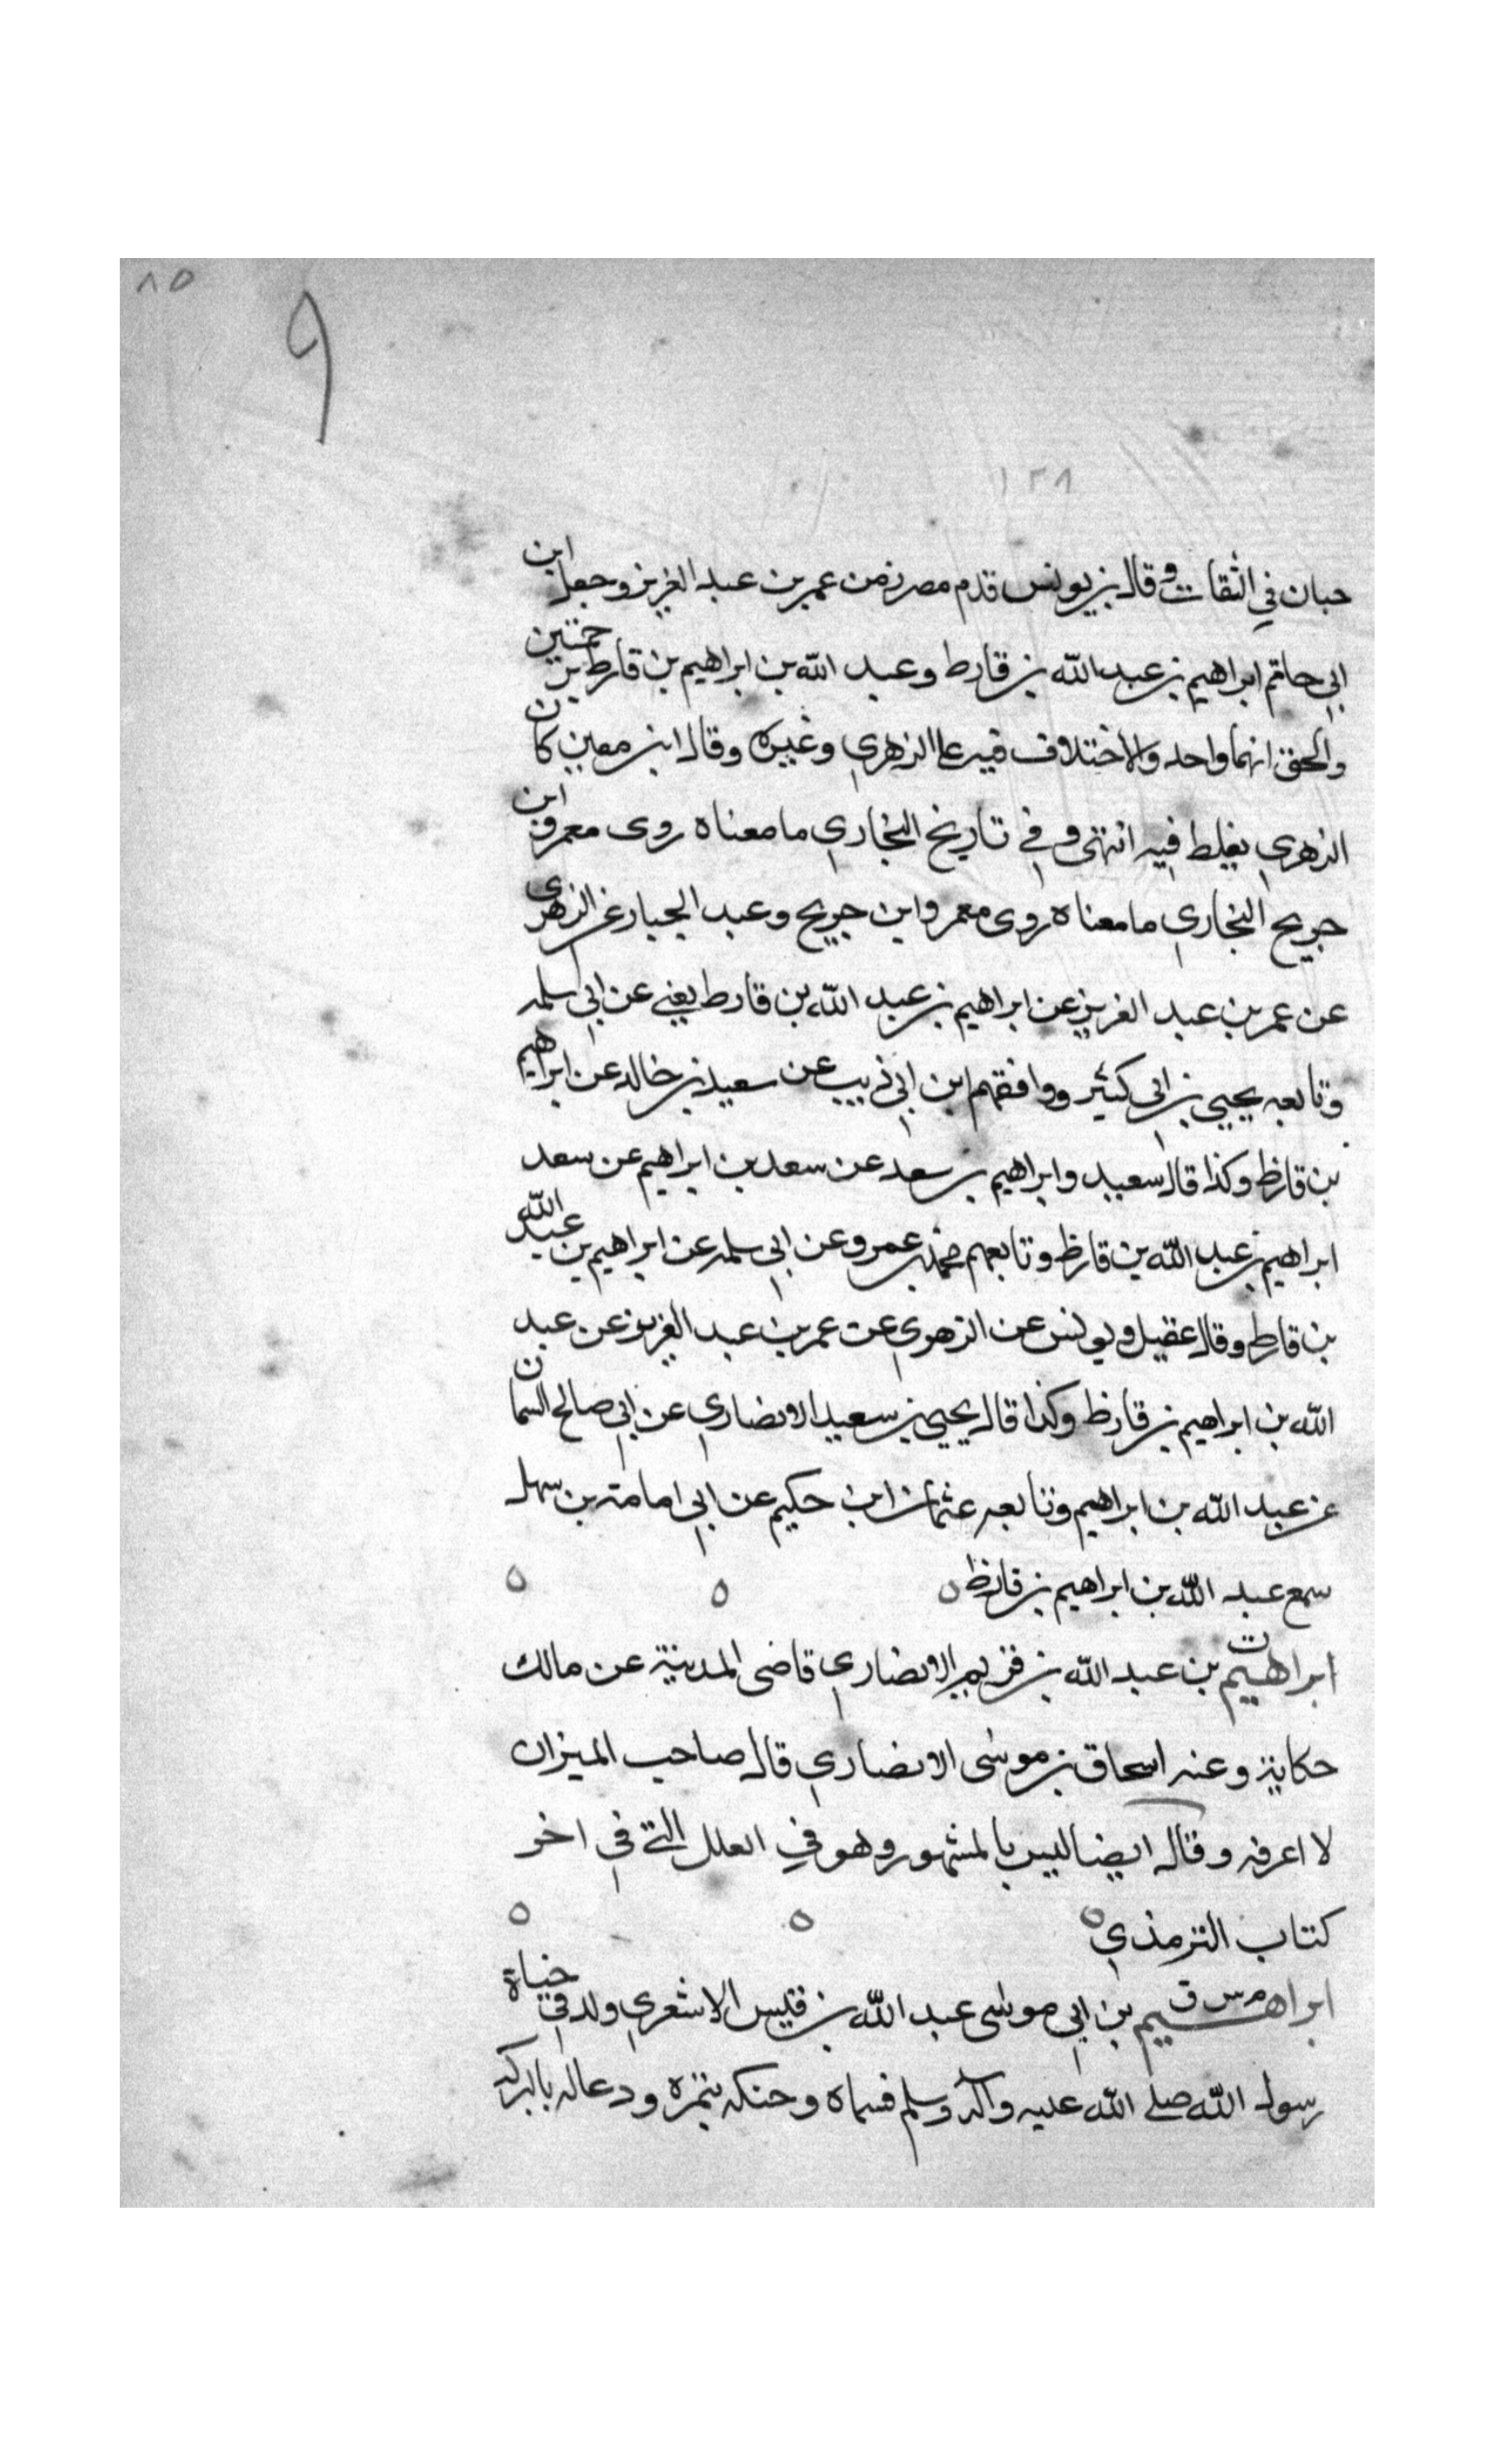 ٨٥
٩
١٢٨
حبان في الثقات وقال بن يونس قدم مصر زمن عمر بن عبد العزيز وجعل ابن
ابي حاتم ابراهيم بن عبد الله بن قارط وعبد الله بن ابراهيم بن قارط ترجمتين
والحق انهما واحد والاختلاف فيه على الزهري وغيره وقال ابن معين كان
الزهري يغلط فيه انتهى وفي تاريخ البخاري ما معناه روى معمر وابن
جريج البخاري ما معناه روى معمر وابن جريج وعبد الجبار عن الزهري
عن عمر بن عبد العزيز عن ابراهيم بن عبد الله بن قارط يعني عن ابي سلمه
وتابعه يحيى بن ابي كثير ووافقهم ابن ابي ذيب عن سعيد بن خالد عن ابراهيم
بن قارظ وكذا قال سعيد وابراهيم بن سعد عن سعد بن ابراهيم عن سعد
ابراهيم بن عبد الله بن قارظ وتابعهم محمد بن عمرو عن ابي سلمه عن ابراهيم بن عبد الله
بن قارط وقال عقيل ويونس عن الزهري عن عمر بن عبد العزيز عن عبد
الله بن ابراهيم بن قارظ وكذا قال يحيى بن سعيد الانصاري عن ابي صالح السمان
عن عبد الله بن ابراهيم وتابعه عثمان ابن حكيم عن ابي امامة بن سهل
سمع عبد الله بن ابراهيم بن قارظ ه ه ه
ابراهيم ت بن عبد الله بن قريم الانصاري قاضى المدينة عن مالك
حكاية وعنه اسحاق بن موسى الانصاري قال صاحب الميزان
لا اعرفه وقال ايضا ليس بالمشهور وهو في العلل التي في اخر
كتاب الترمذي ه ه ه
ابراهيم م س ق بن ابي موسى عبد الله بن قيس الاشعري ولد في حياة
رسول الله صلى الله عليه وآله وسلم فسماه وحنكه بتمرة ودعا له بالبركه